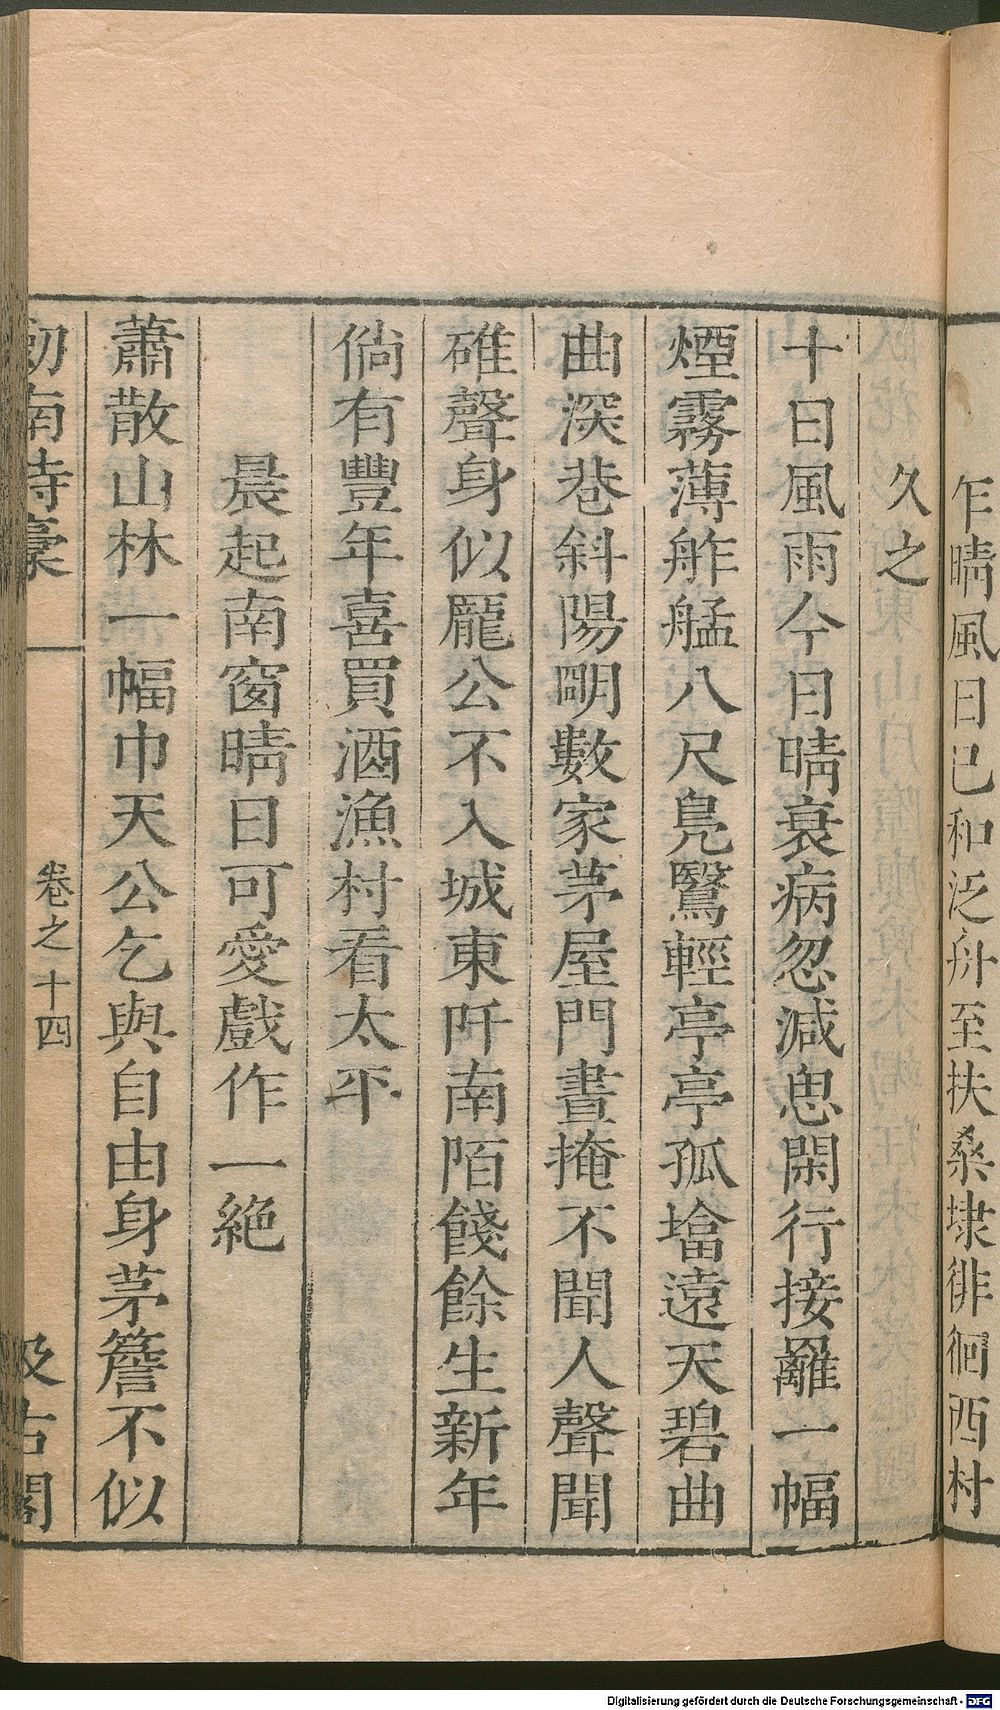 乍晴風日已和泛舟至扶桑埭徘徊西村
久之
十日風雨今日晴衰病忽減思閑行接䍦一幅
煙霧薄舴艋八尺鳧鷖輕亭亭孤墖遠天碧曲
曲深巷斜陽朙數家茅屋門晝掩不聞人聲聞
碓聲身似龎公不入城東阡南陌餞餘生新年
倘有豐年喜買酒漁村看太平
晨起南窗晴日可愛戲作一絶
蕭散山林一幅巾天公乞與自由身茅簷不似
劒南詩稾
卷之十四
汲古閣
Digitalisierung gefördert durch die Deutsche Forschungsgemeinschaft - DFG